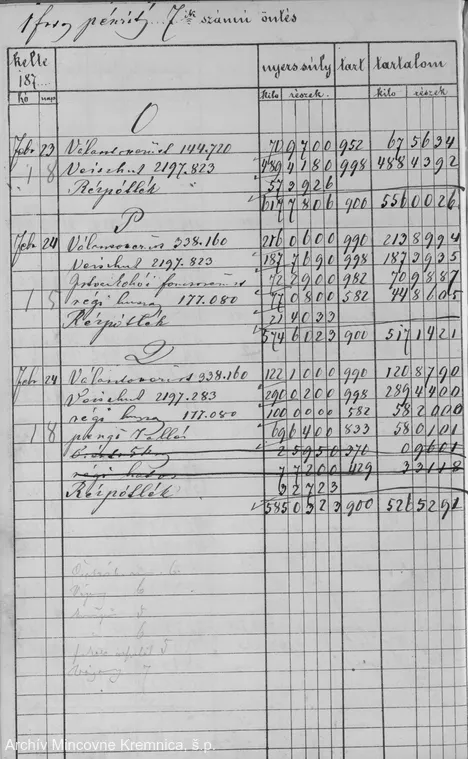 1 frtos pénzből 7ik számú öntés
kelte nyers súly tart tartalom
187...
hó nap kilo részek kilo részek
O
febr 23 Választóezüst 144.720 70 9700 952 67 5634
1 8 Veischut 2197.823 489 4180 998 488 4392
Rézpótlék 57 3926
617 7806 900 556 0026
P
Febr 24 Választóezüst 338.160 216 0600 990 213 8994
Veischut 2197.823 187 7690 998 187 3935
72 2900 982 70 9887
1 5 régi huszas 177.080 77 0800 582 44 8605
Rézpótlék 21 4033
574 6023 900 517 1421
Q
Febr 24 Választóezüst 338.160 122 1000 990 120 8790
Veischut 2197.283 290 0200 998 289 4400
régi huszas 177.080 100 0000 582 58 2000
1 8 69 6400 833 58 0101
2 5950 370 0 9601
régi hatos 7 7200 429 3 3118
Rézpótlék 3 2723
585 0323 900 526 5291
6
6
5
6
5
7
Archív Mincovne Kremnica, š.p.